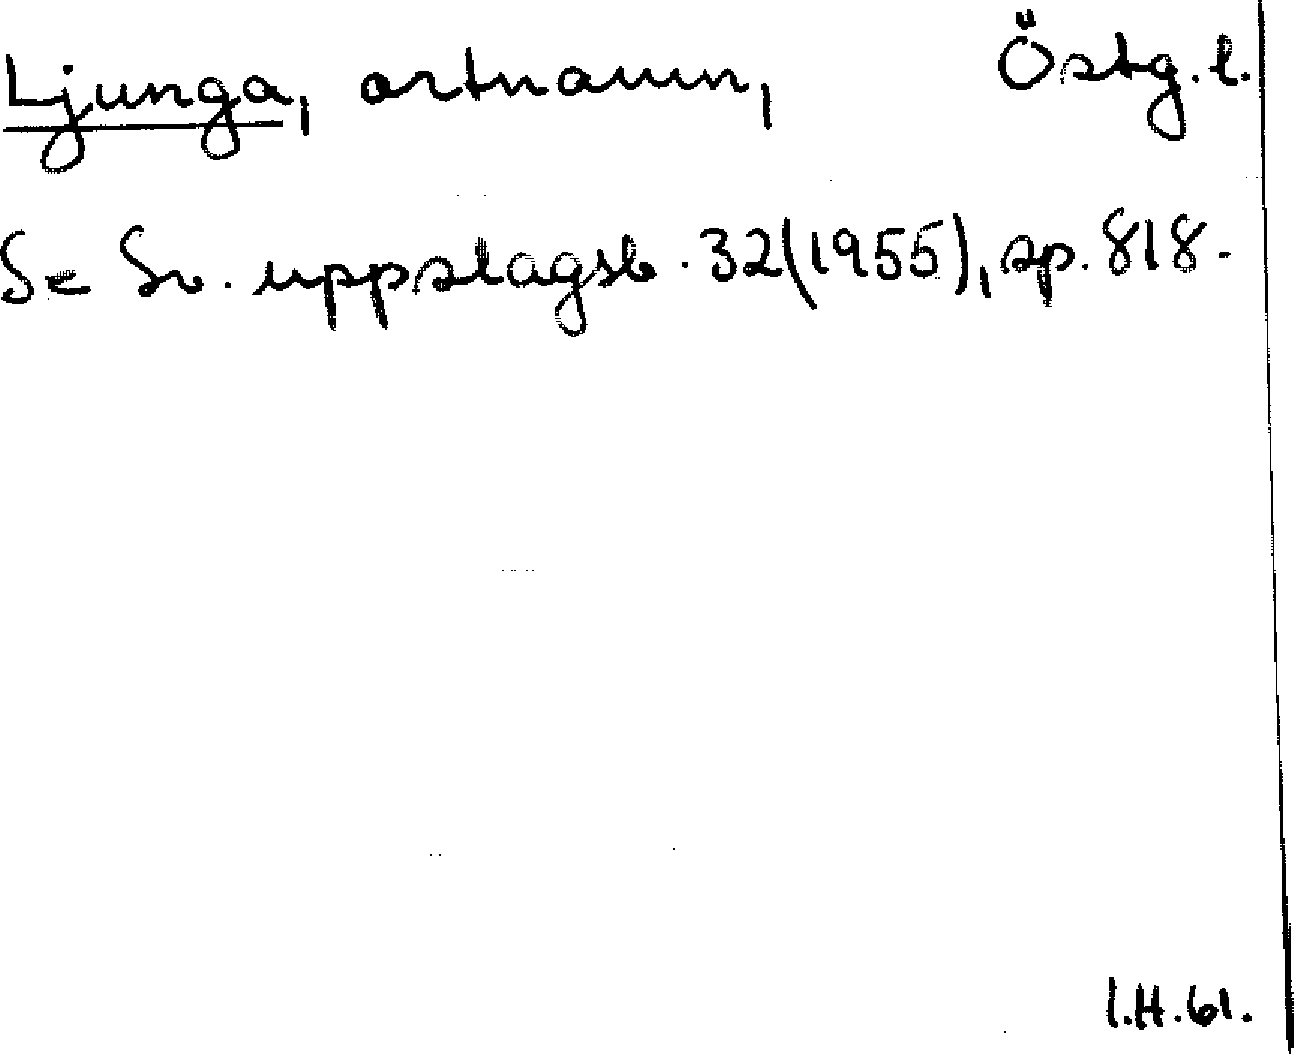 Ljunga, ortnamn, Östg. l.
Se Sv. uppslagsb. 32(1955), sp. 818.
I.H.61.